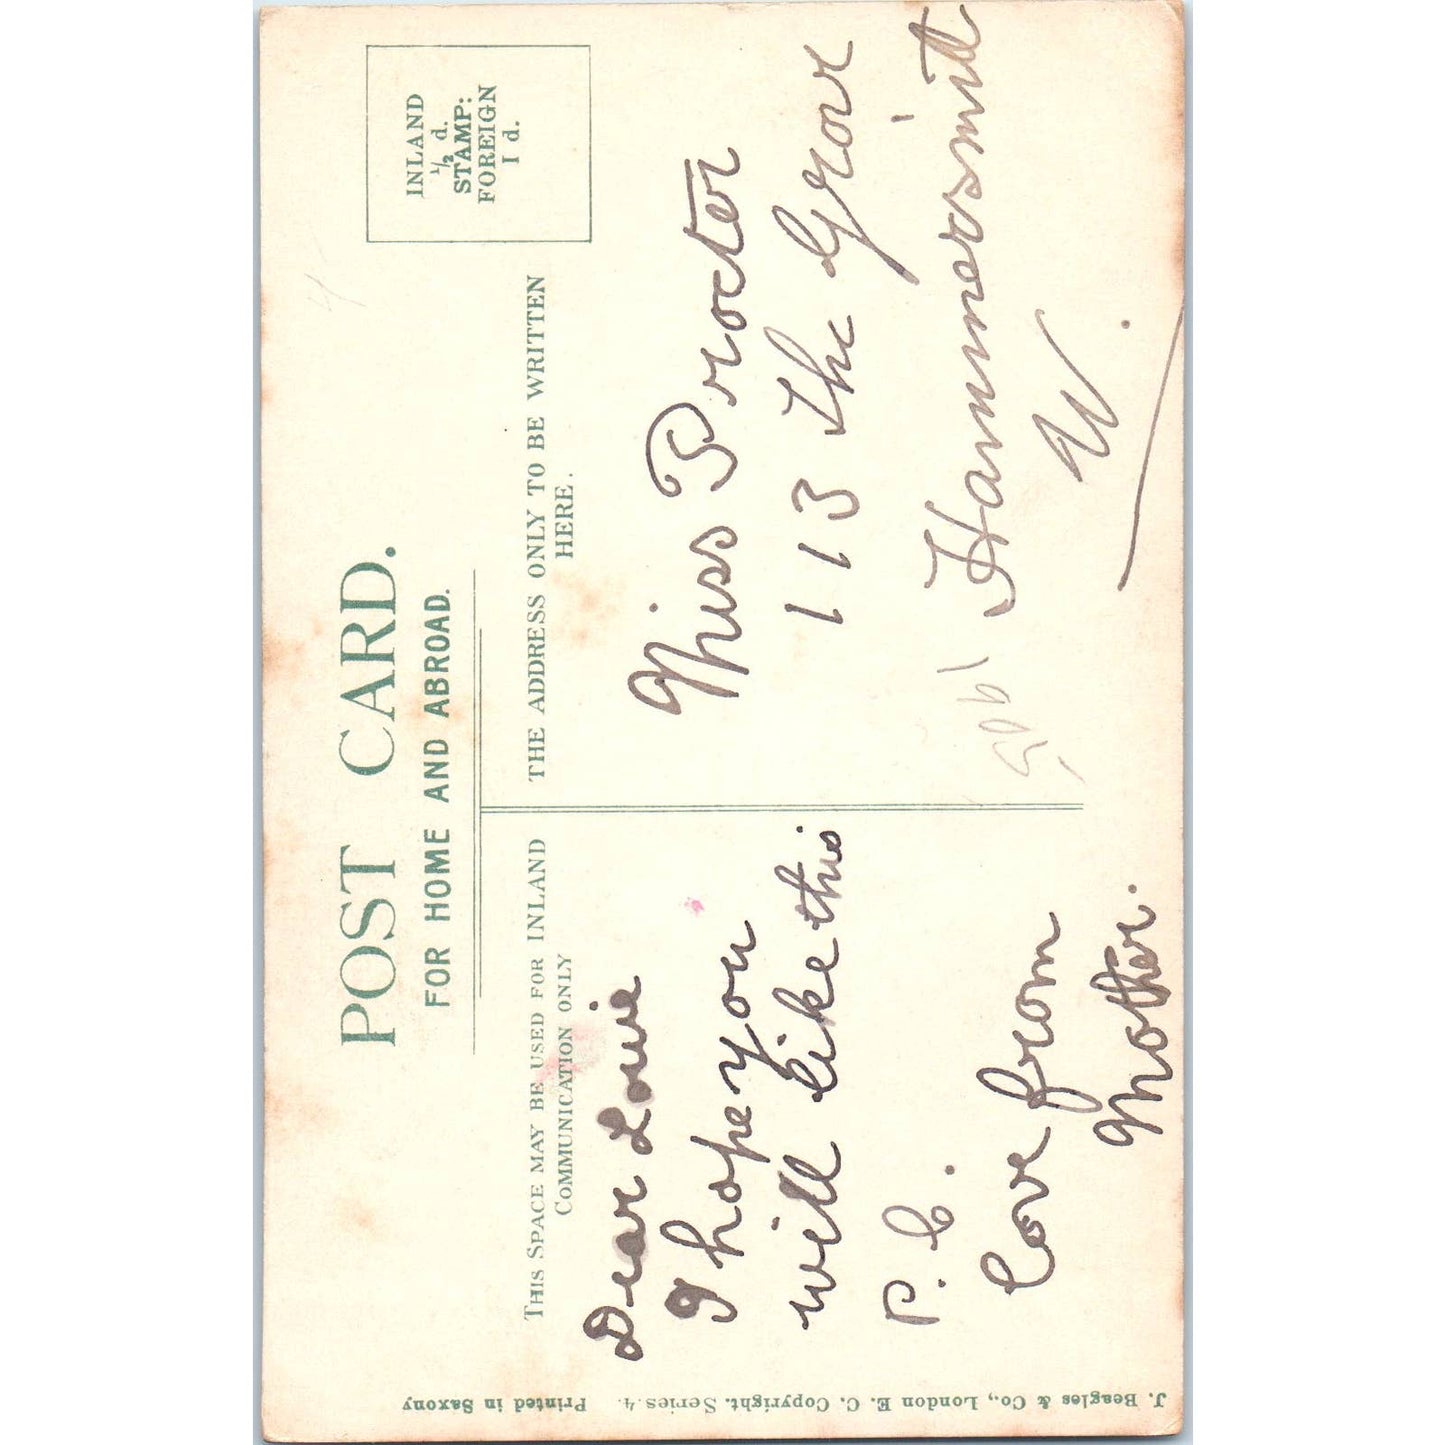 POST CARD.
FOR HOME AND ABROAD.
INLAND
½ d.
STAMP:
FOREIGN
1 d.
THIS SPACE MAY BE USED FOR INLAND
COMMUNICATION ONLY
THE ADDRESS ONLY TO BE WRITTEN
HERE.
Dear Louie
I hope you
will like this
P.C.
love from
Mother.
Miss Procter
113 The Grov
Hammersmith
W.
J. Beagles & Co., London E. C. Copyright. Series 4. Printed in Saxony